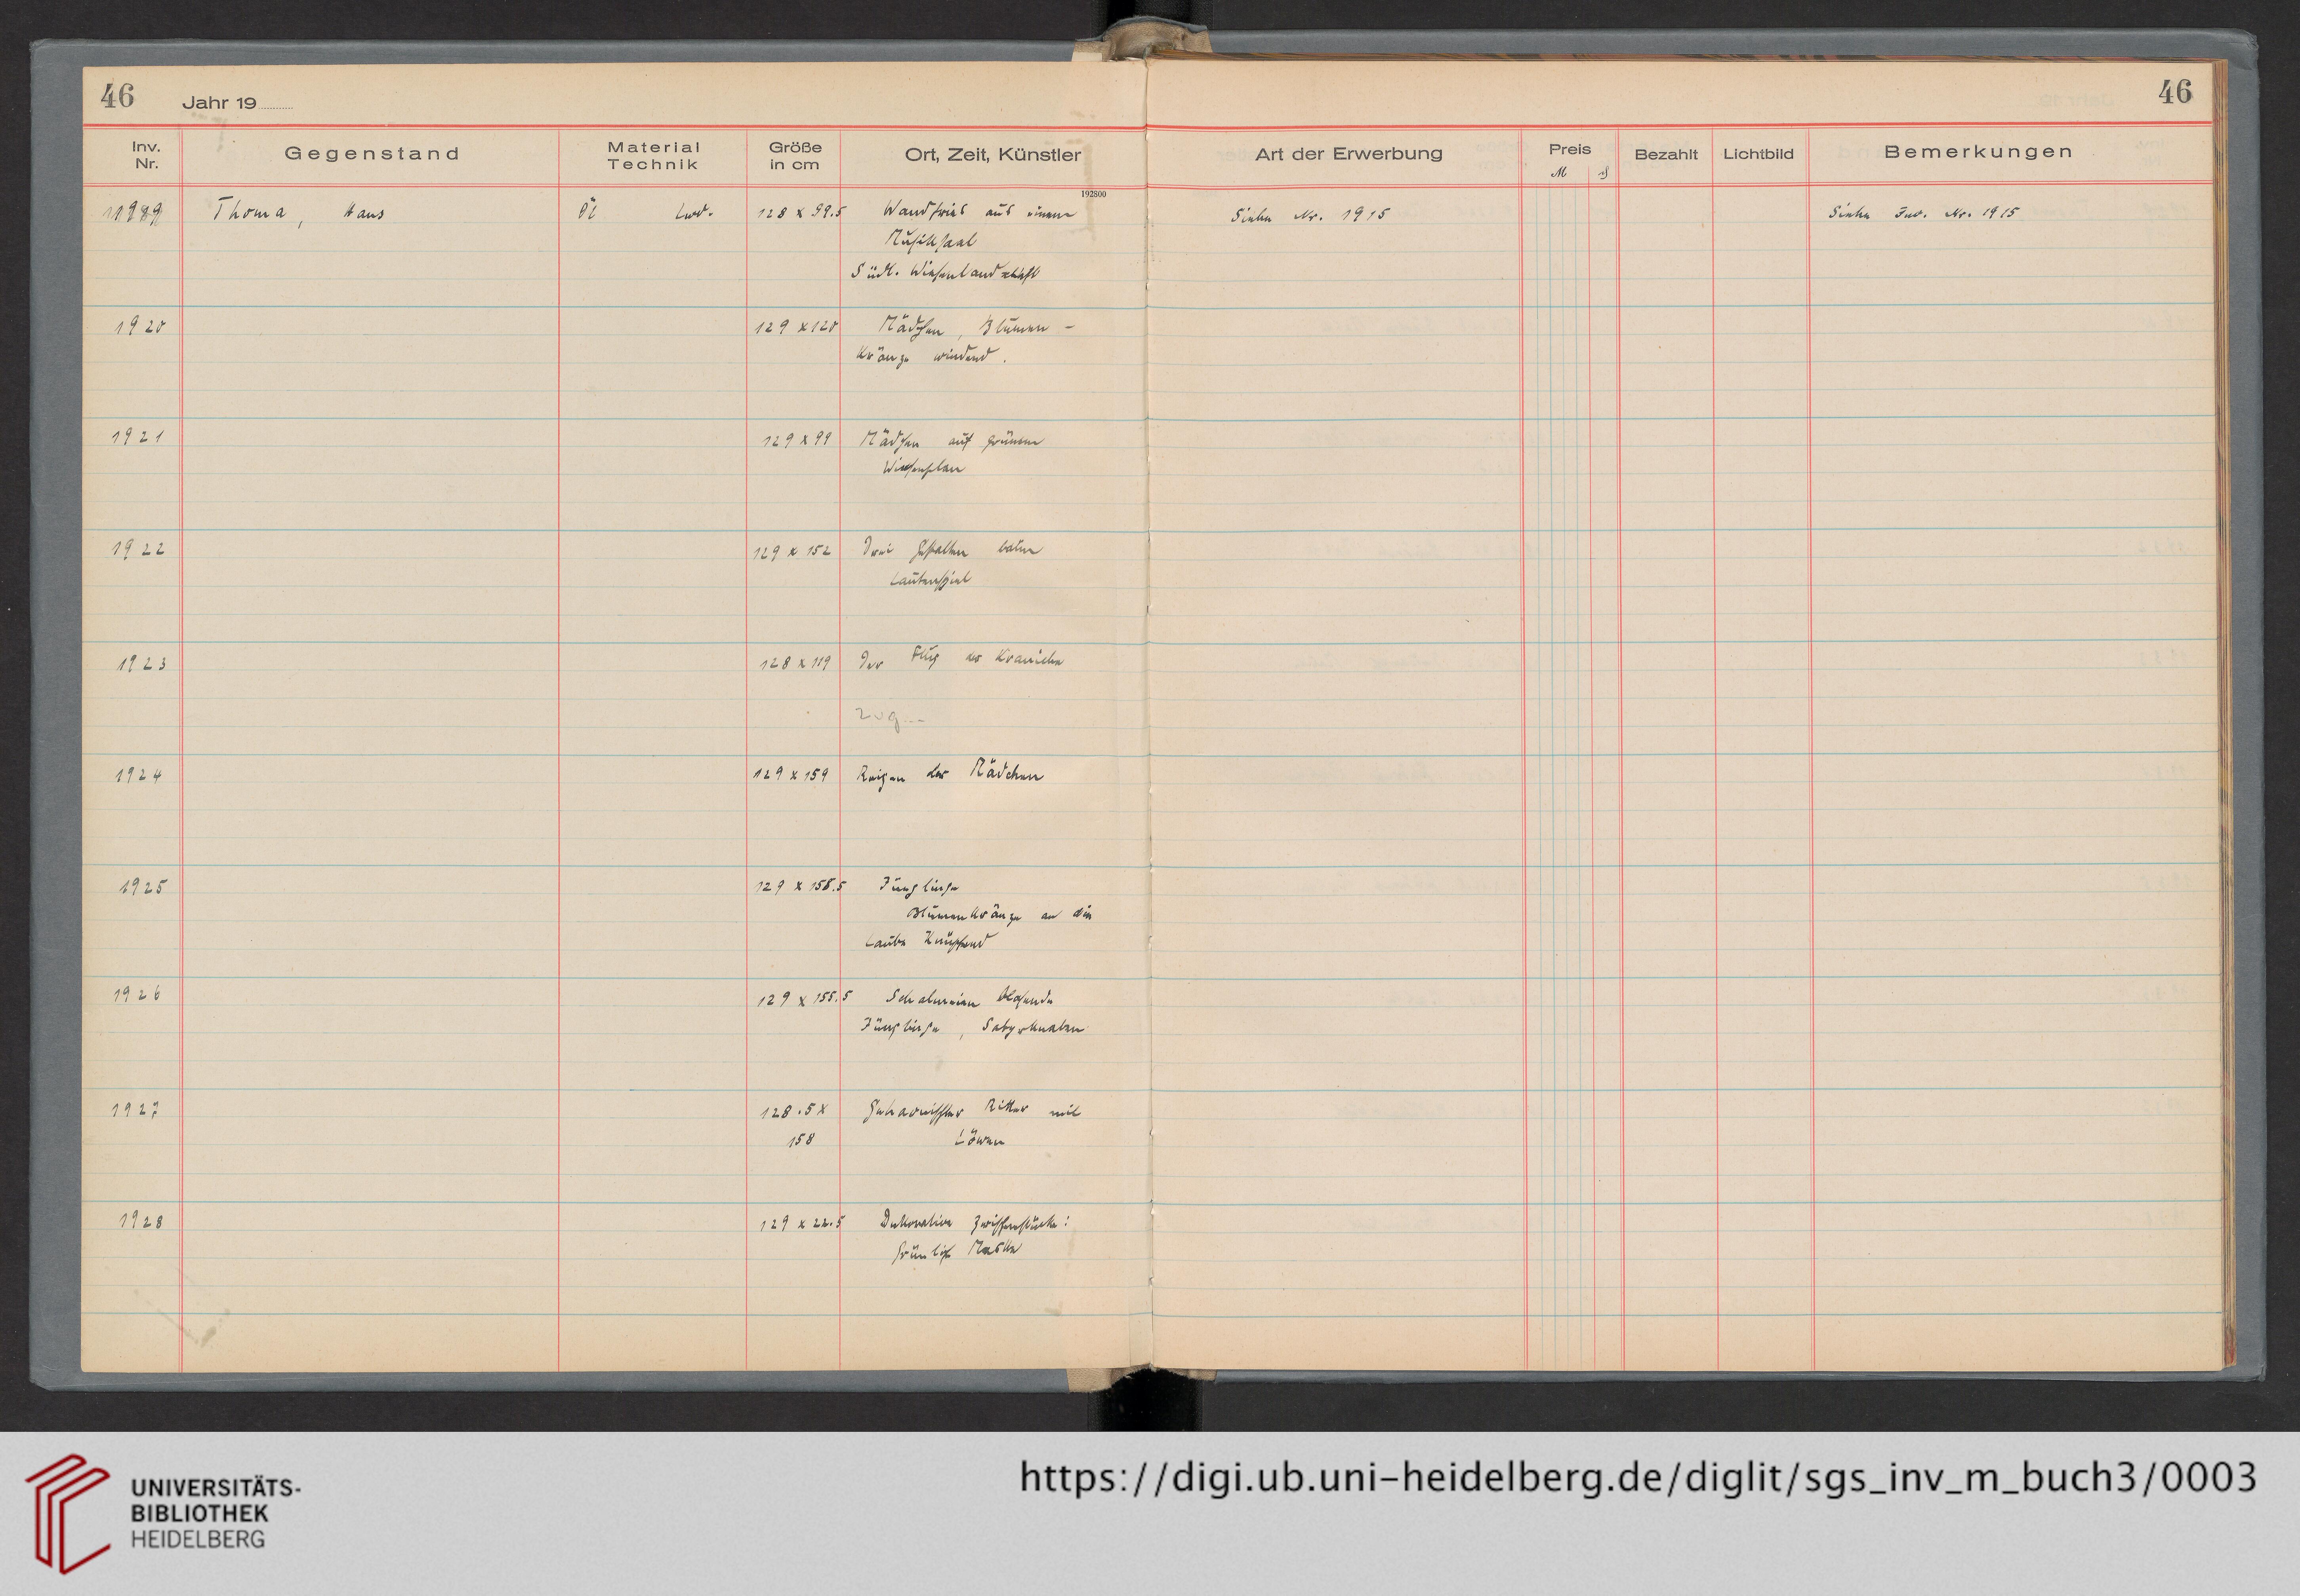 46
Jahr 19
46
Inv. Nr.
Gegenstand
Material Technik
Größe in cm
Ort, Zeit, Künstler
Art der Erwerbung
Preis
M ₰
Bezahlt
Lichtbild
Bemerkungen
192800
Thoma, Hans Öl Lwd. 128 x 99.5 Wandfries aus einem Siehe Nr. 1915 Siehe Inv. Nr. 1915
Musiksaal
Südl. Wiesenlandschaft
1920 129 x 120 Mädchen, Blumen-
Kränze windend.
1921 129 x 99 Mädchen auf grünem
Wiesenplan
1922 129 x 152 Drei Gestalten beim
Lautenspiel
1923 128 x 119 Der Flug der Kraniche
Zug
1924 129 x 159 Reigen der Mädchen
1925 129 x 158.5 Jünglinge
Blumenkränze an die
Laube knüpfend
1926 129 x 155.5 Schalmeien blasende
Jünglinge, Satyrknaben
1927 128.5 x Geharnischter Ritter mit
158 Löwen
1928 129 x 22.5 Dekorative Zwischenstücke:
grünlich Maske
UNIVERSITÄTS-
BIBLIOTHEK
HEIDELBERG
https://digi.ub.uni-heidelberg.de/diglit/sgs_inv_m_buch3/0003